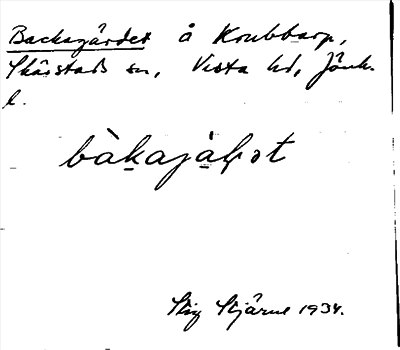 Backagärdet å Krubbarp,
Skärstads sn, Vista hd, Jönk.
l.
bàka̠jà̠ḷət
Stig Stjärne 1934.